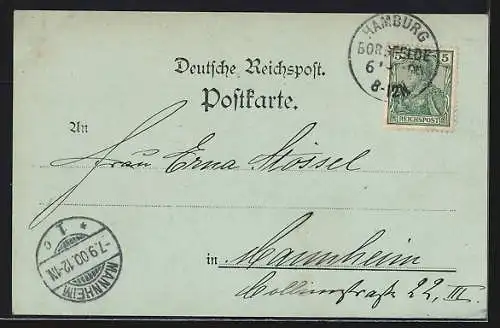 HAMBURG
BORGFELDE
8-12N.
5 5
REICHSPOST
Deutsche Reichspost.
Postkarte.
An
Frau Erna Stössel
in Mannheim
Collinistraße 22, III.
MANNHEIM
-7.9.00.12-1N.
* 1 c